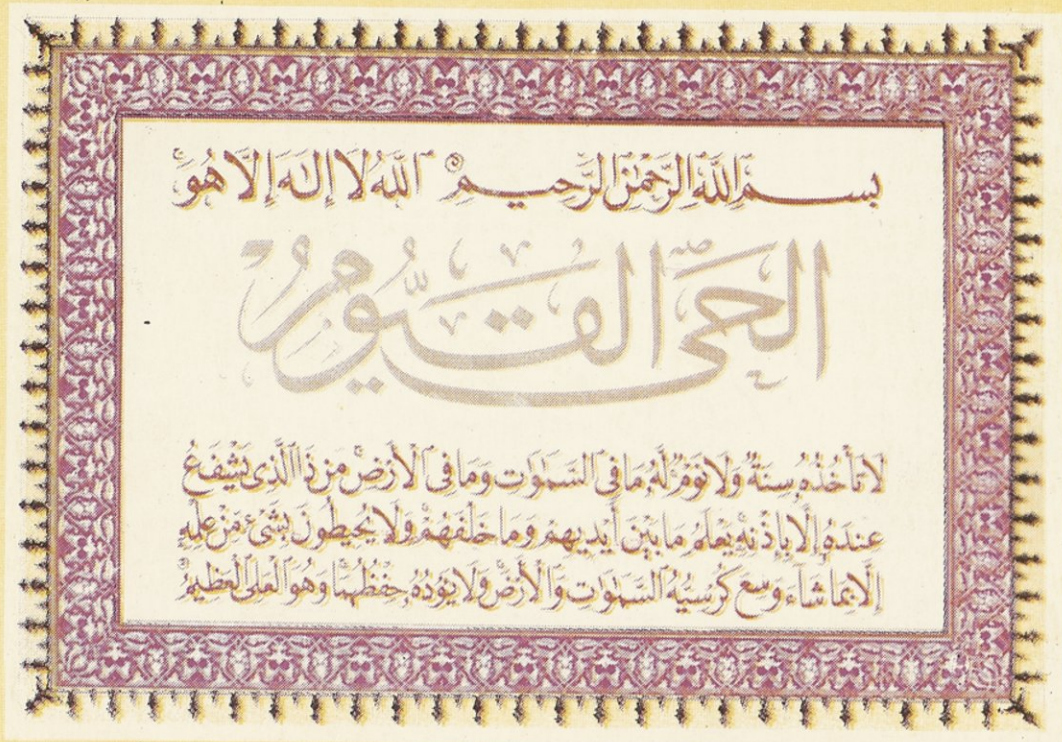 بِسْمِ اللَّهِ الرَّحْمَٰنِ الرَّحِيمِ اللَّهُ لَا إِلَٰهَ إِلَّا هُوَ
الْحَيُّ الْقَيُّومُ
لَا تَأْخُذُهُ سِنَةٌ وَلَا نَوْمٌ لَّهُ مَا فِي السَّمَٰوَٰتِ وَمَا فِي الْأَرْضِ مَن ذَا الَّذِي يَشْفَعُ
عِندَهُ إِلَّا بِإِذْنِهِ يَعْلَمُ مَا بَيْنَ أَيْدِيهِمْ وَمَا خَلْفَهُمْ وَلَا يُحِيطُونَ بِشَيْءٍ مِّنْ عِلْمِهِ
إِلَّا بِمَا شَاءَ وَسِعَ كُرْسِيُّهُ السَّمَٰوَٰتِ وَالْأَرْضَ وَلَا يَئُودُهُ حِفْظُهُمَا وَهُوَ الْعَلِيُّ الْعَظِيمُ